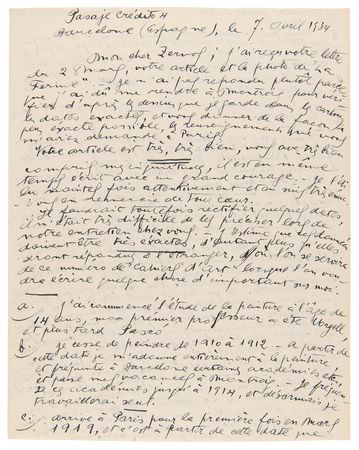 Pasaje Crédito 4
Barcelone (Espagne), le 7 avril 1934
Mon cher Zervos; j'ai reçu votre lettre
du 2 Mars, votre article et la photo de "La
Ferme". Je n'ai pu répondre plutôt parce
que j'ai dû me rendre à Montroig pour véri-
fier d'après les dessins que je garde dans les cartons
les dates exactes, et vous donner de la façon la
plus exacte possible, les renseignements que vous
m'avez demandé à Paris.
Votre article est très, très bien, vous avez très bien
compris mes intentions, il est en même
temps écrit avec un grand courage. Je l'ai
lu maintes fois attentivement et on m'a très ému
vous en remercie de tout coeur.
Il faudrait toutefois rectifier quelques dates,
il m'était très difficile de les préciser lors de
notre entretien chez vous. J'estime que les données
doivent être très exactes, d'autant plus qu'elles
seront répandu à l'étranger, et où l'on se servira
de ce numéro de "Cahiers d'Art" lorsque l'on vou-
dra écrire quelque chose d'important sur moi.
a. - j'ai commencé l'étude de la peinture à l'âge de
14 ans, mon premier professeur a été Urgell,
et plus tard Pascó
b. - je cesse de peindre de 1910 à 1912 - à partir de
cette date je m'adonne entièrement à la peinture
et fréquente à Barcelone certaines académies etc,
et passe mes vacances à Montroig. - Je fréquen-
te ces académies jusqu'à 1914, et désormais je
travaillerai seul.
c. - arrive à Paris pour la première fois en Mars
1919, et c'est à partir de cette date que